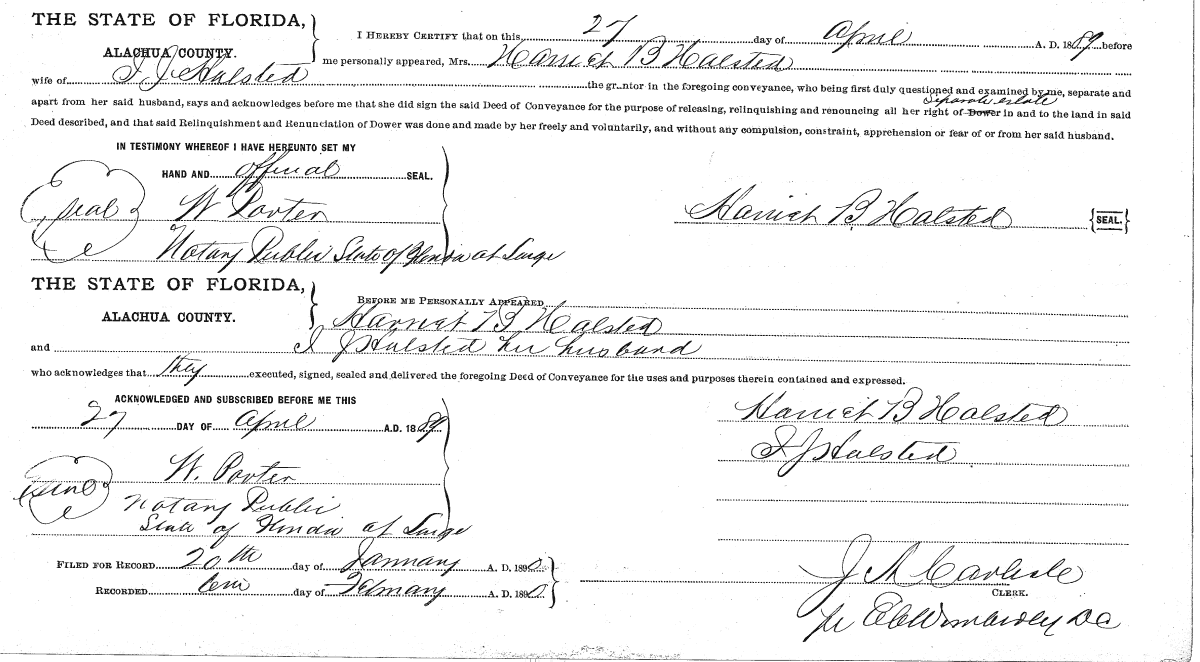 THE STATE OF FLORIDA,
ALACHUA COUNTY.
I HEREBY CERTIFY that on this 27 day of April A. D. 1889 before
me personally appeared, Mrs. Harriet B Halsted
wife of I. J. Halsted the gr ntor in the foregoing conveyance, who being first duly questioned and examined by me, separate and
separate estate
apart from her said husband, says and acknowledges before me that she did sign the said Deed of Conveyance for the purpose of releasing, relinquishing and renouncing all her right of Dower in and to the land in said
Deed described, and that said Relinquishment and Renunciation of Dower was done and made by her freely and voluntarily, and without any compulsion, constraint, apprehension or fear of or from her said husband.
IN TESTIMONY WHEREOF I HAVE HEREUNTO SET MY
HAND AND official SEAL.
seal W Porter
Harriet B Halsted {SEAL.}
Notary Public State of Florida at Large
THE STATE OF FLORIDA,
ALACHUA COUNTY.
BEFORE ME PERSONALLY APPEARED
Harriet B Halsted
and I J Halsted her husband
who acknowledges that they executed, signed, sealed and delivered the foregoing Deed of Conveyance for the uses and purposes therein contained and expressed.
ACKNOWLEDGED AND SUBSCRIBED BEFORE ME THIS
27 DAY OF April A.D. 1889
Harriet B Halsted
I J Halsted
W. Porter
seal
Notary Public
State of Florida at Large
FILED FOR RECORD 20th day of January A. D. 1890
RECORDED day of February A. D. 1890
J A Carlisle
CLERK.
DC